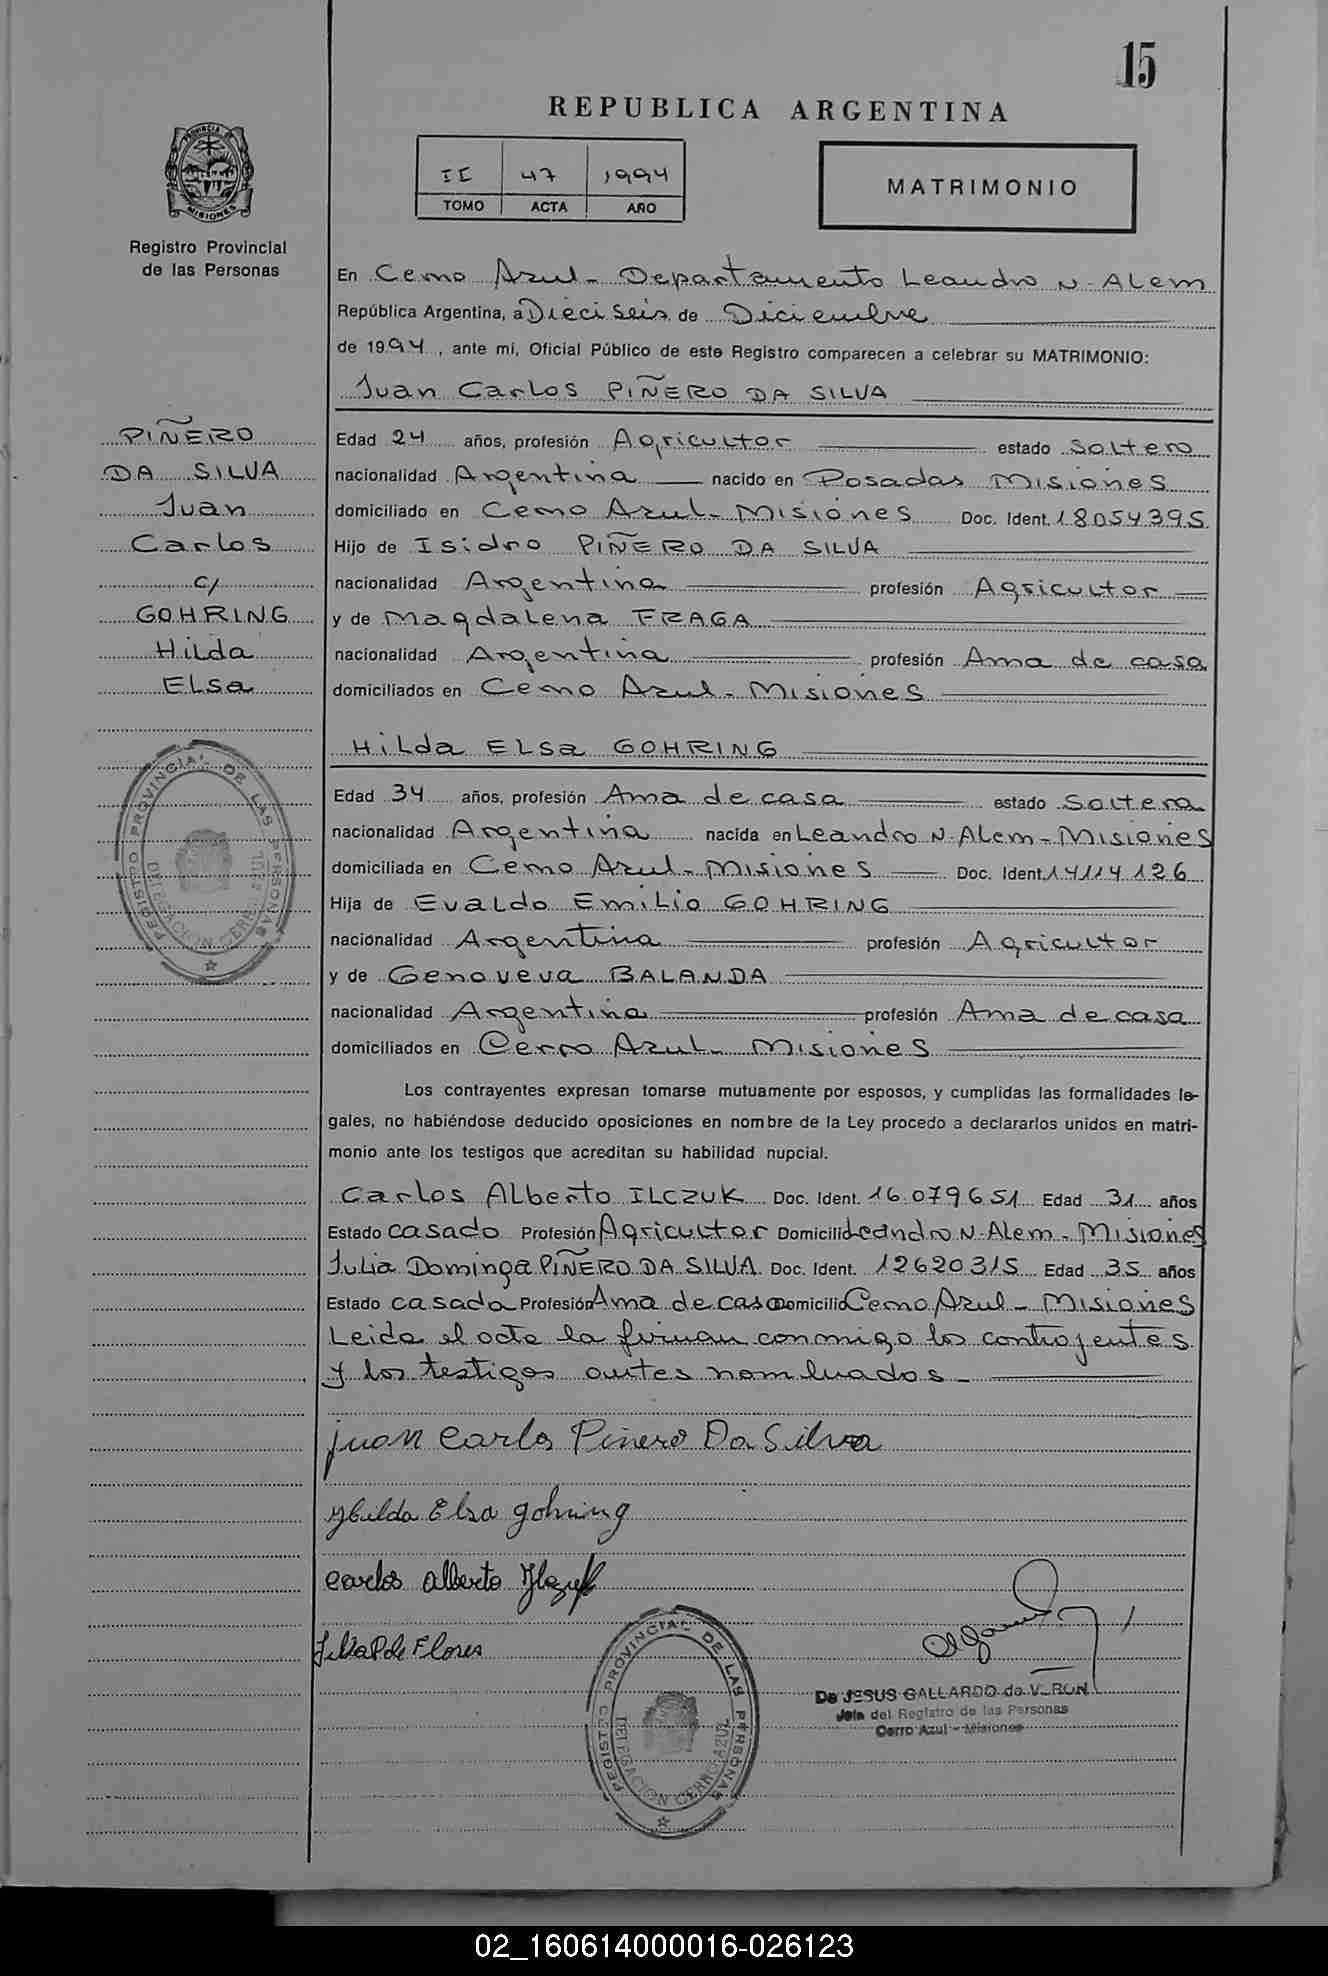 15
REPUBLICA ARGENTINA
II 47 1994
TOMO ACTA AÑO
MATRIMONIO
PROVINCIA DE MISIONES
Registro Provincial
de las Personas
En Cerro Azul - Departamento Leandro N. Alem
República Argentina, a Dieci seis de Diciembre
de 1994, ante mí, Oficial Público de este Registro comparecen a celebrar su MATRIMONIO:
Juan Carlos PIÑERO DA SILVA
PIÑERO
DA SILVA
Juan
Carlos
c/
GOHRING
Hilda
Elsa
Edad 24 años, profesión Agricultor estado Soltero
nacionalidad Argentina nacido en Posadas Misiones
domiciliado en Cerro Azul - Misiones Doc. Ident. 18054395
Hijo de Isidro PIÑERO DA SILVA
nacionalidad Argentina profesión Agricultor
y de Magdalena FRAGA
nacionalidad Argentina profesión Ama de casa
domiciliados en Cerro Azul - Misiones
Hilda Elsa GOHRING
Edad 34 años, profesión Ama de casa estado Soltera
nacionalidad Argentina nacida en Leandro N. Alem - Misiones
domiciliada en Cerro Azul - Misiones Doc. Ident. 14114126
Hija de Evaldo Emilio GOHRING
nacionalidad Argentina profesión Agricultor
y de Genoveva BALANDA
nacionalidad Argentina profesión Ama de casa
domiciliados en Cerro Azul - Misiones
REGISTRO PROVINCIAL DE LAS PERSONAS
DELEGACION CERRO AZUL
Los contrayentes expresan tomarse mutuamente por esposos, y cumplidas las formalidades le-
gales, no habiéndose deducido oposiciones en nombre de la Ley procedo a declararlos unidos en matri-
monio ante los testigos que acreditan su habilidad nupcial.
Carlos Alberto ILCZUK Doc. Ident. 16.079651 Edad 31 años
Estado casado Profesión Agricultor Domicilio Leandro N. Alem - Misiones
Julia Dominga PIÑERO DA SILVA Doc. Ident. 12620315 Edad 35 años
Estado casada Profesión Ama de casa Domicilio Cerro Azul - Misiones
Leida el acta la firman conmigo los contrayentes
y los testigos antes nombrados -
Juan Carlos Piñero Da Silva
Hilda Elsa Gohring
Carlos Alberto
Julia P de Flores
De JESUS GALLARDO de V RON
Jefa del Registro de las Personas
Cerro Azul - Misiones
REGISTRO PROVINCIAL DE LAS PERSONAS
DELEGACION CERRO AZUL
02_160614000016-026123